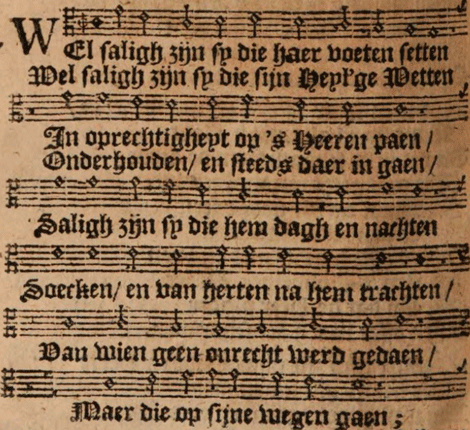 WEl saligh zijn sy die haer voeten setten
Wel saligh zijn sy die sijn Heyl'ge Wetten
In oprechtigheyt op 's Heeren paen /
Onderhouden / en steeds daer in gaen /
Saligh zijn sy die hem dagh en nachten
Soecken / en van herten na hem trachten /
Van wien geen onrecht werd gedaen /
Maer die op sijne wegen gaen ;